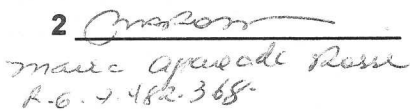 2
maria aparecida Rossi
R.G. 7.482.368-